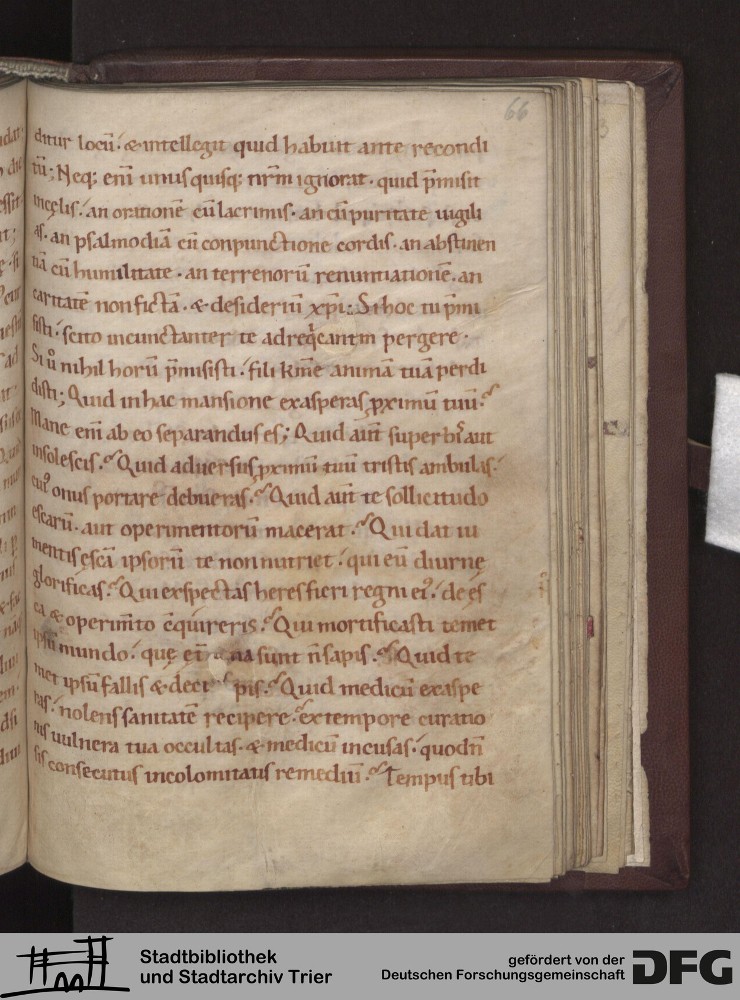 66
ditur locū. & intellegit quid habuit ante recondi
tū; Neq; enī unusquisq; nr̄m ignorat. quid p̄misit
in cęlis. an orationē cū lacrimis. an cū puritate uigili
as. an psalmodiā cū conpunctione cordis. an abstinen
tiā cū humilitate. an terrenorū renuntiationē. an
caritatē non fictā. & desideriū xp̄i; Si hoc tu p̄mi
sisti. scito incunctanter te ad reqͥem pergere.
Si ū nihil horū p̄misisti. fili kr̄me animā tuā perdi
disti; Quid in hac mansione exasperas pximū tuū?
Mane enī ab eo separandus es; Quid aūt superbis aut
insolescis? Quid aduersus pximū tuū tristis ambulas.
cui' onus portare debueras? Quid aūt te sollicitudo
escarū. aut operimentorū macerat? Qui dat iu
mentis ęscā ipsorū te non nutriet. qui eū diurnę
glorificas? Qui exspectas heres fieri regni ei'. de es
ca & operim̄to c̄quireris? Qui mortificasti temet
ipsū mundo. quę ei' sunt n̄ sapis? Quid te
met ipsū fallis & decipis? Quid medicū exaspe
ras. nolens sanitatē recipere? ex tempore curatio
nis uulnera tua occultas. & medicū incusas. quod n̄
sis consecutus incolomitatis remediū? Tempus tibi
Stadtbibliothek
und Stadtarchiv Trier
gefördert von der
Deutschen Forschungsgemeinschaft
DFG